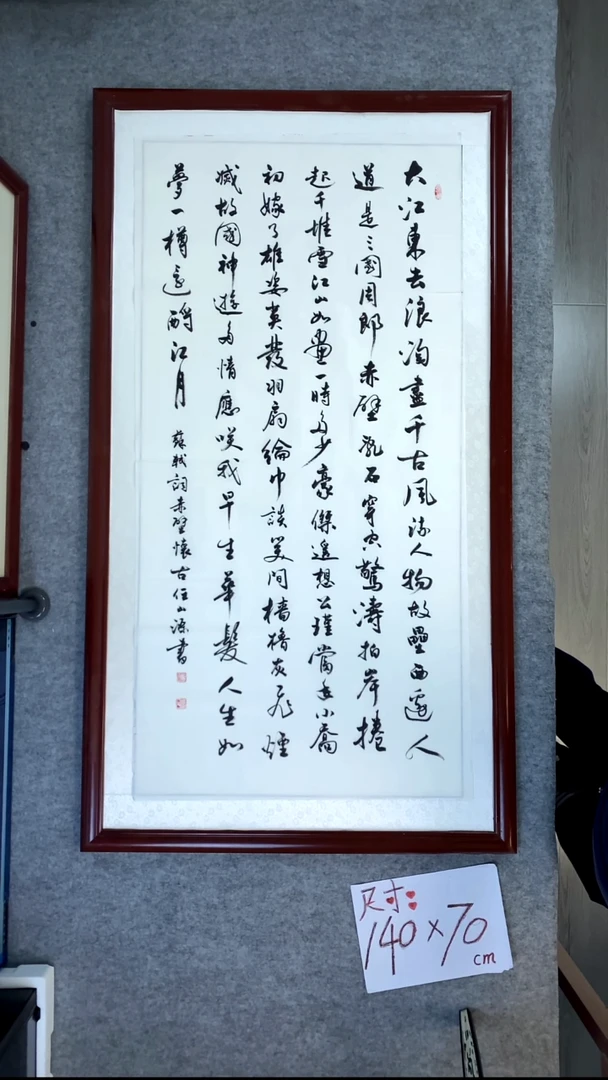 大江東去浪淘盡千古風流人物故壘西邊人
道是三國周郎赤壁亂石穿空驚濤拍岸捲
起千堆雪江山如畫一時多少豪傑遙想公瑾當年小喬
初嫁了雄姿英發羽扇綸巾談笑間檣櫓灰飛煙
滅故國神遊多情應咲我早生華髮人生如
夢一樽還酹江月
蘇軾詞赤壁懷古任山源書
尺寸:
140×70
cm